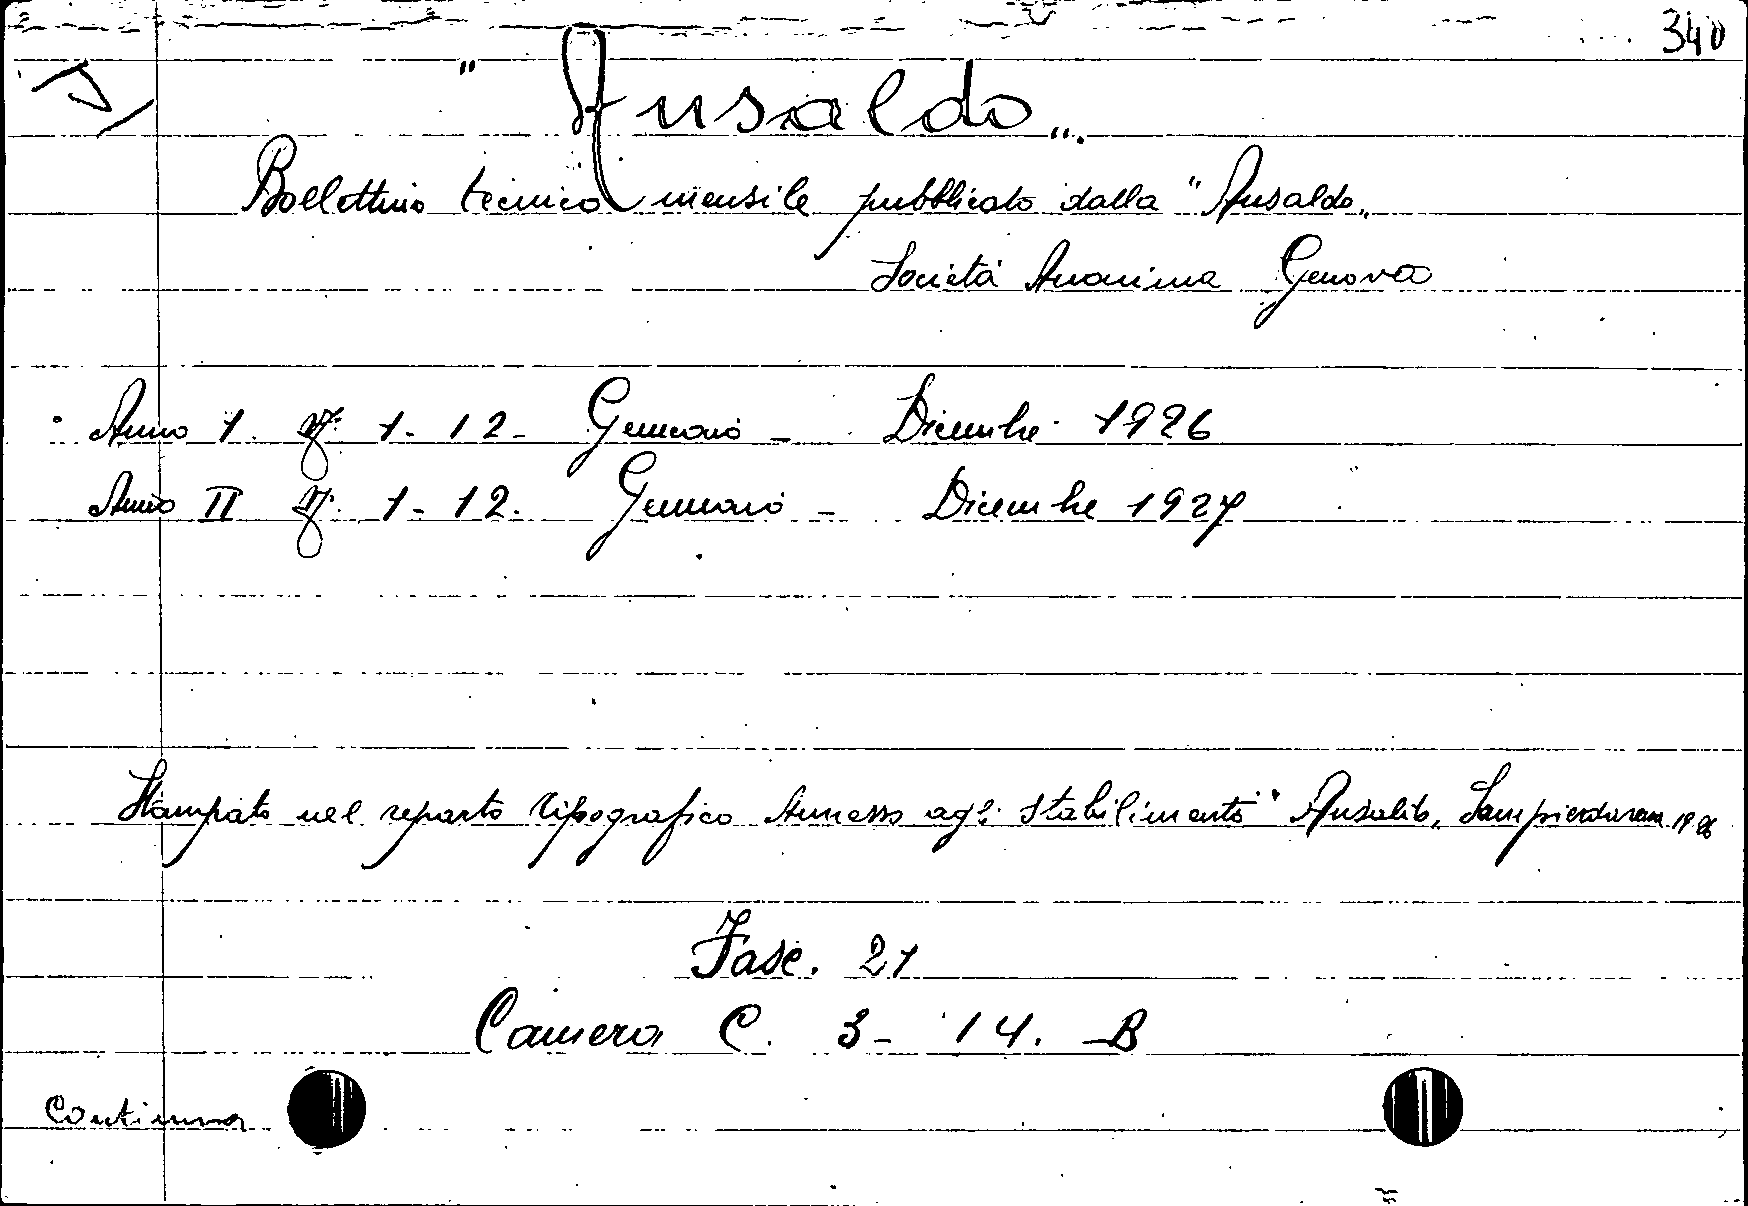 340
"Ansaldo".
Bollettino tecnico mensile pubblicato dalla "Ansaldo"
Società Anonima Genova
Anno 1. N. 1-12- Gennaio - Dicembre 1926
Anno II N. 1-12. Gennaio - Dicembre 1927
Stampato nel reparto tipografico Annesso agli stabilimenti "Ansaldo" Sampierdarena 1926
Fasc. 21
Camera C. 3- 14. B
Continua